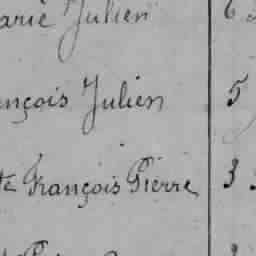 arie Julien 6
ançois Julien 5
te François Pierre 3